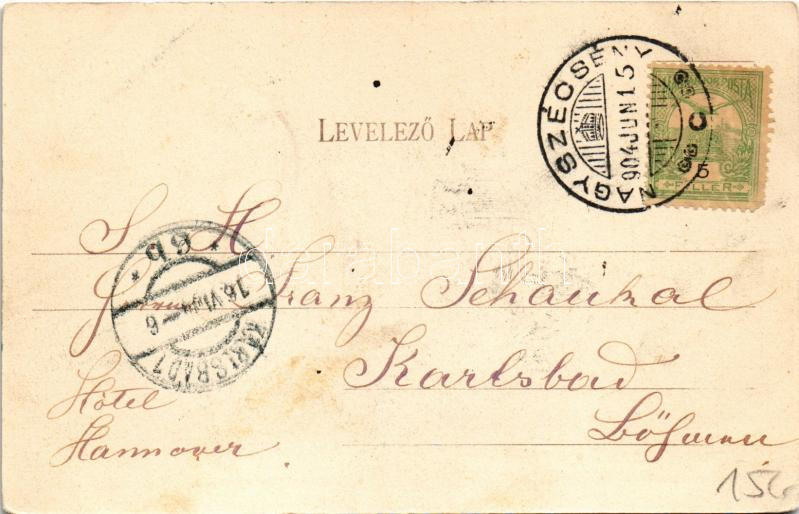 NAGYSZÉCSÉNY
904 JUN 15
C
5
FILLÉR
LEVELEZŐ LAP
darabanth
S. H.
Franz Schaukal
Karlsbad
Böhmen
Hôtel
Hannover
KARLSBAD 1
16.VI.04-6
*6b*